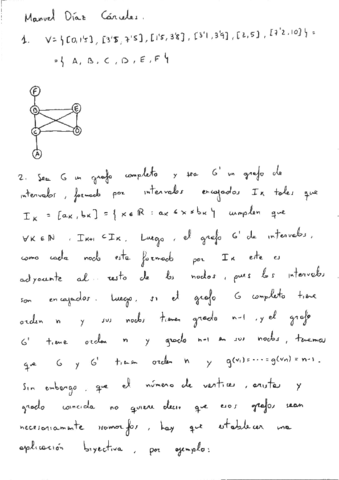 Manuel Díaz Cárceles.
1. V = { [0,1'5], [3'5, 7'5], [1'5, 3'8], [3'1, 3'9], [2,5], [7'2,10] } =
= { A, B, C, D, E, F }
F
B E
C D
A
2. Sea G un grafo completo y sea G' un grafo de
intervalos, formado por intervalos encajados Iₖ tales que
Iₖ = [aₖ, bₖ] = { x ∈ ℝ : aₖ ≤ x ≤ bₖ } cumplen que
∀k ∈ ℕ , Iₖ₊₁ ⊂ Iₖ. Luego, el grafo G' de intervalos,
como cada nodo esta formado por Iₖ este es
adyacente al resto de los nodos, pues los intervalos
son encajados. Luego, si el grafo G completo tiene
orden n y sus nodos tienen grado n-1, y el grafo
G' tiene orden n y grado n-1 en sus nodos, tenemos
que G y G' tienen orden n y g(v₁)=----=g(vₙ) = n-1.
Sin embargo, que el número de vertices, aristas y
grado coincida no quiere decir que esos grafos sean
necesariamente isomorfos, hay que establecer una
aplicación biyectiva, por ejemplo: